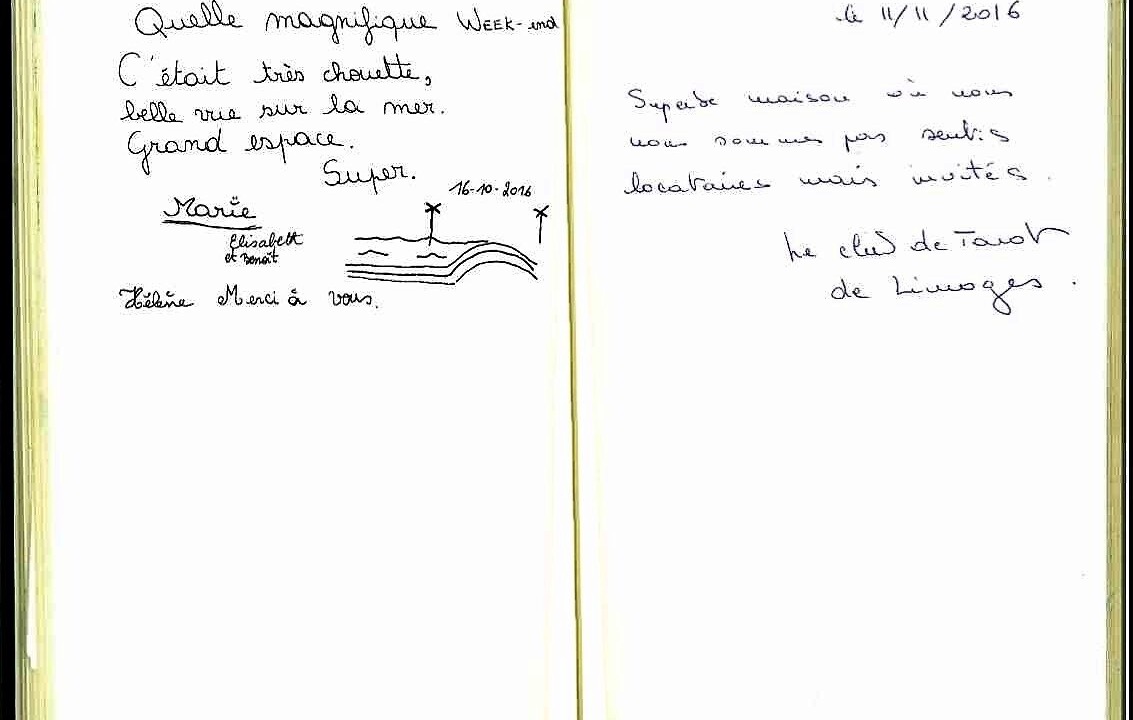 Quelle magnifique WEEK-end
C'était très chouette,
belle vue sur la mer.
Grand espace.
Super.
16-10-2016
Marie
Elisabeth
et Benoît
Hélène Merci à vous.
le 11/11/2016
Superbe maison où nous
nous sommes pas sentis
locataires mais invités.
Le club de Tarot
de Limoges.